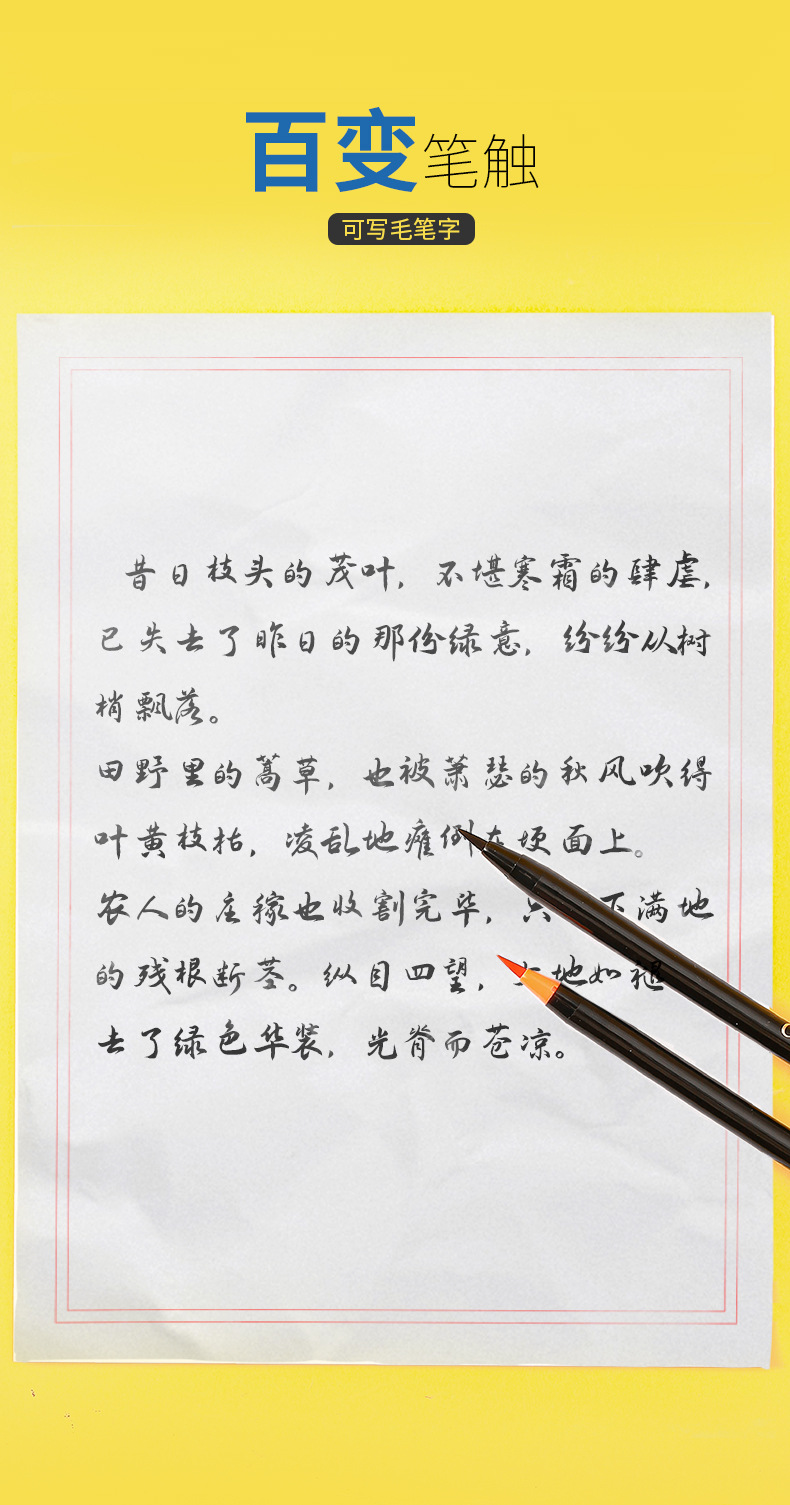 百变笔触
可写毛笔字
昔日枝头的茂叶，不堪寒霜的肆虐，
已失去了昨日的那份绿意，纷纷从树
梢飘落。
田野里的蒿草，也被萧瑟的秋风吹得
叶黄枝枯，凌乱地瘫倒在埂面上。
农人的庄稼也收割完毕，只 下满地
的残根断茎。纵目四望，大地如褪
去了绿色华装，光脊而苍凉。